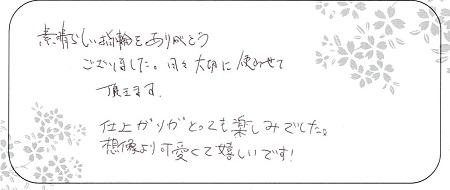 素晴らしい指輪をありがとう
ございました。日々大切に使わせて
頂きます。
仕上がりがとっても楽しみでした。
想像より可愛くて嬉しいです!